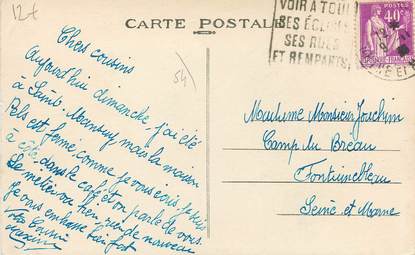 12€
CARTE POSTALE
VOIR A TOUL
SES ÉGLISES
SES RUES
ET REMPARTS
40c
54
Chers cousins
Aujourd'hui dimanche, j'ai été
à Saint-Mansuy mais la maison
est fermé, comme je vous écris je suis
à côté dans le café et on parle de vous.
rien de nouveau
Je vous embrasse bien fort
Votre cousin
Madame Monsieur Joachim
Camp du Bréau
Fontainebleau
Seine et Marne